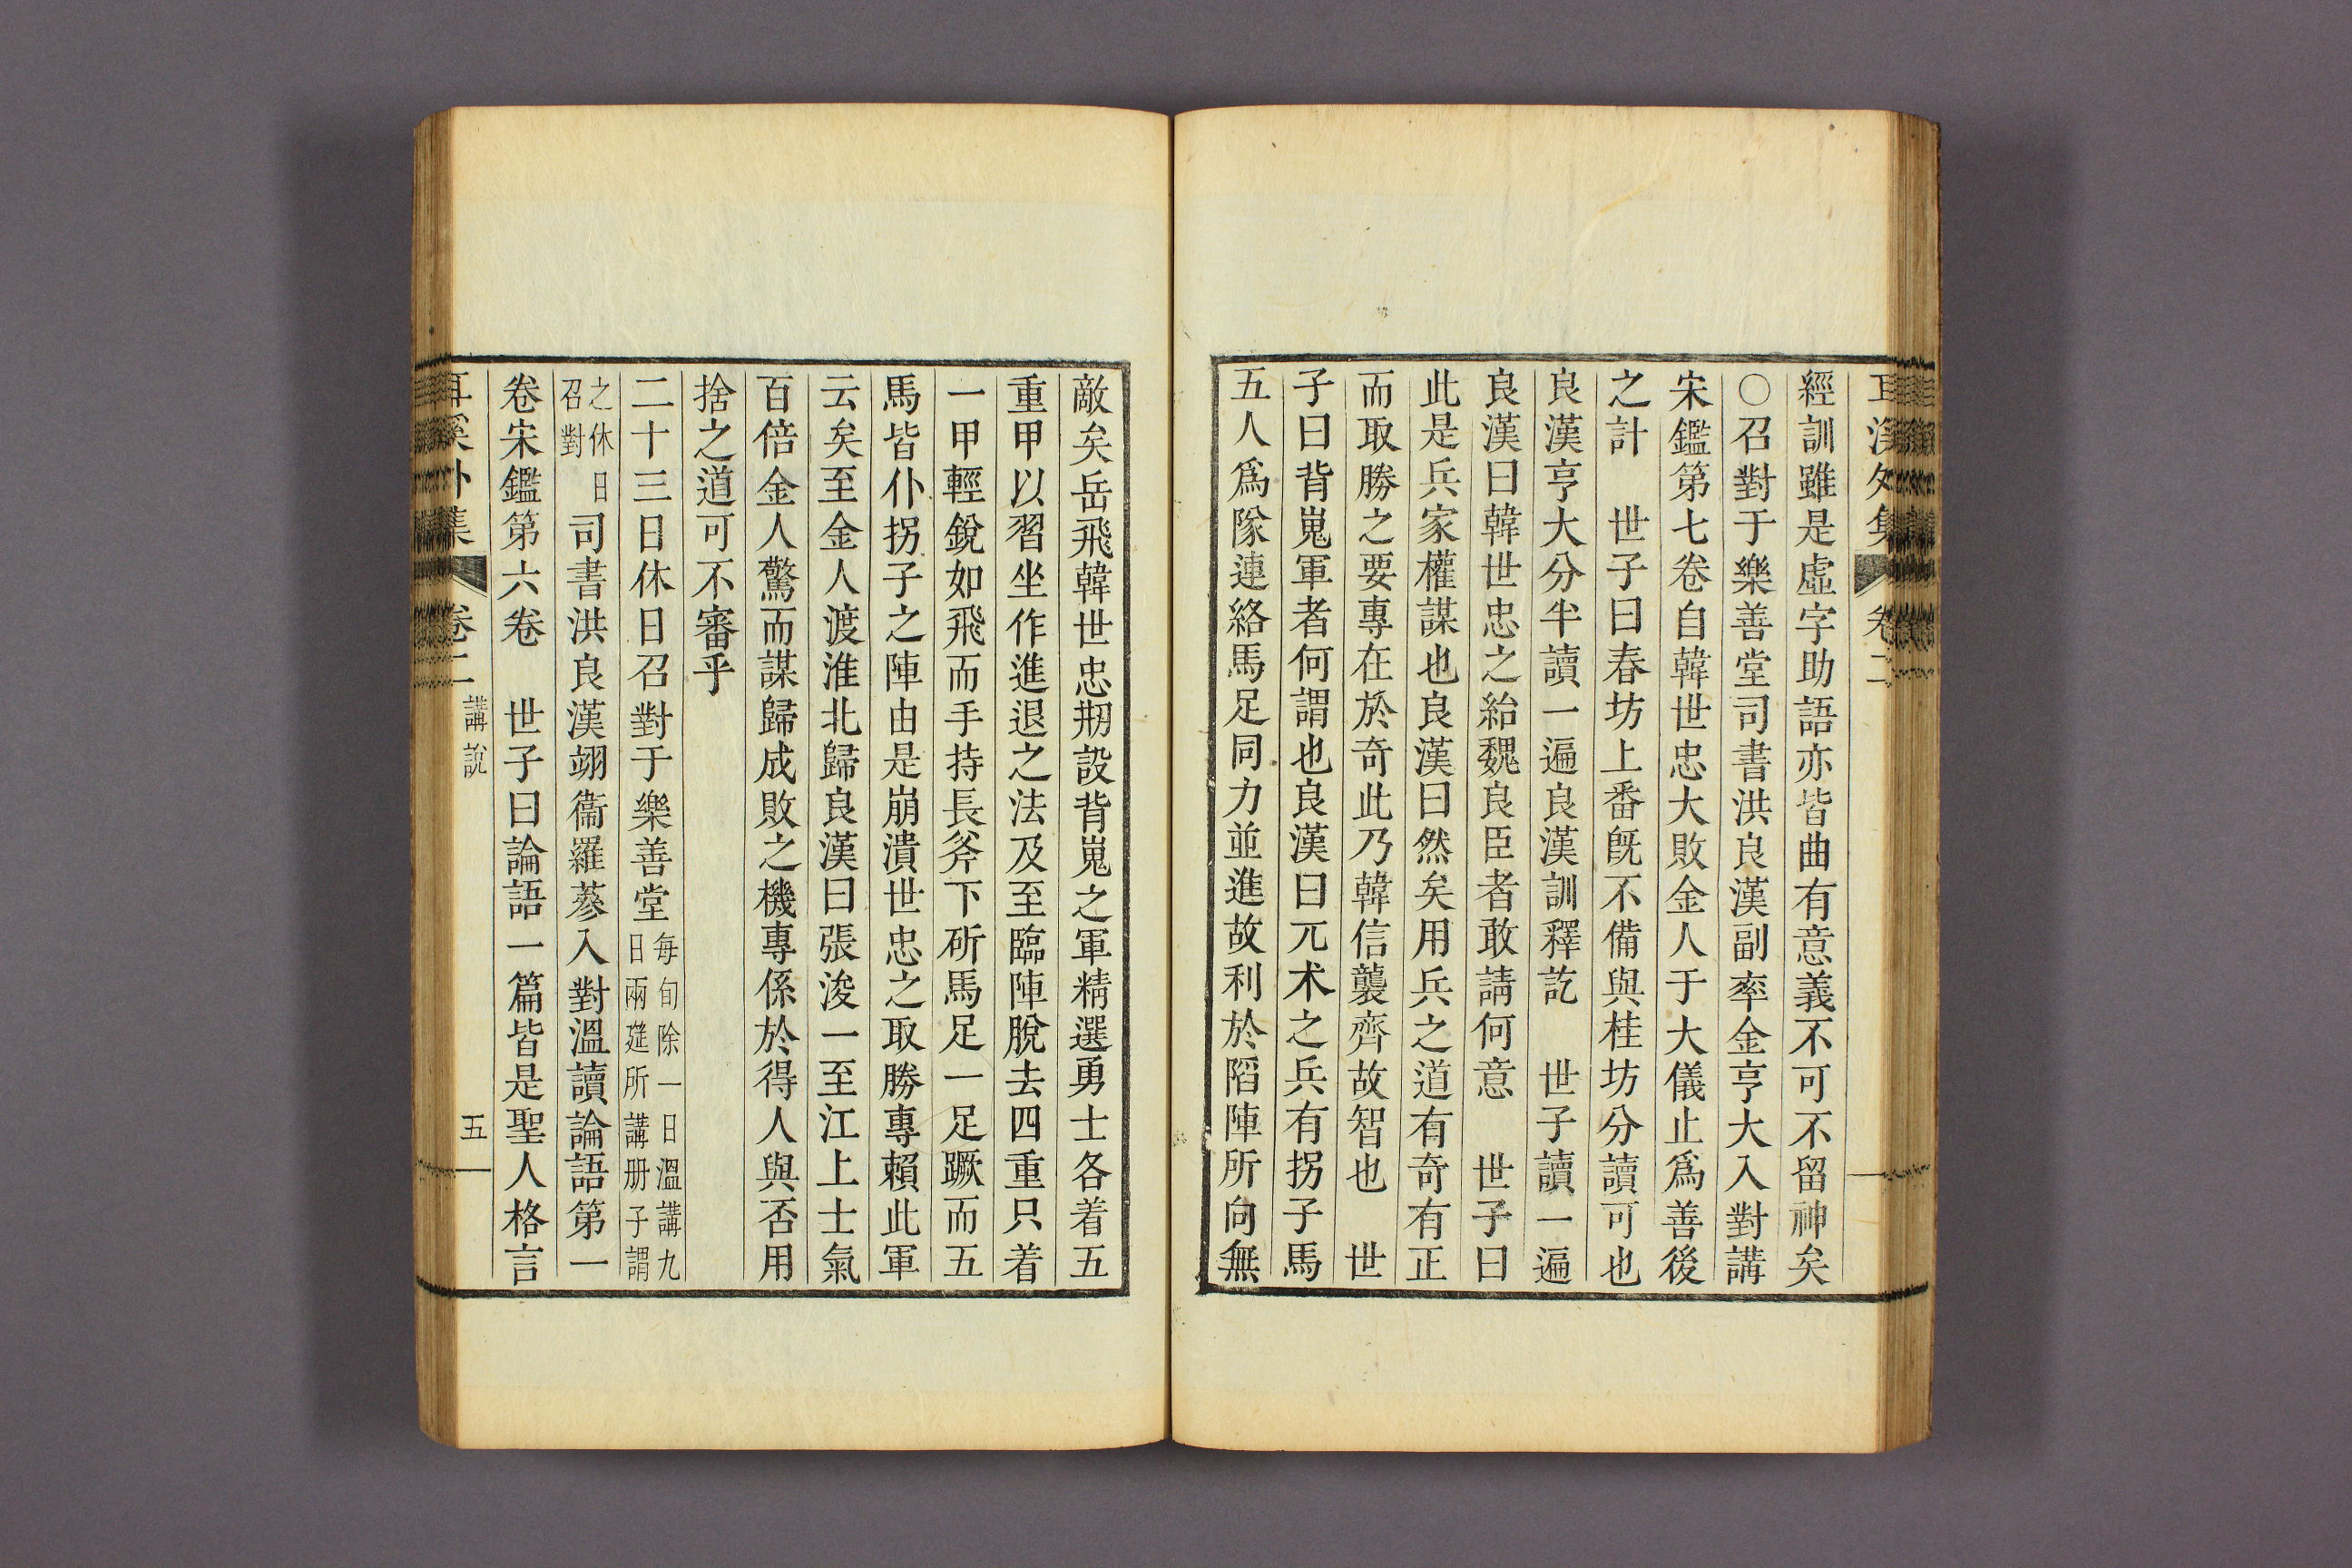 耳溪外集 卷二
經訓雖是虛字助語亦皆曲有意義不可不留神矣
○召對于樂善堂司書洪良漢副率金亨大入對講
宋鑑第七卷自韓世忠大敗金人于大儀止爲善後
之計 世子曰春坊上番旣不備與桂坊分讀可也
良漢亨大分半讀一遍良漢訓釋訖 世子讀一遍
良漢曰韓世忠之紿魏良臣者敢請何意 世子曰
此是兵家權謀也良漢曰然矣用兵之道有奇有正
而取勝之要專在於奇此乃韓信襲齊故智也 世
子曰背嵬軍者何謂也良漢曰兀术之兵有拐子馬
五人爲隊連絡馬足同力並進故利於陷陣所向無
敵矣岳飛韓世忠刱設背嵬之軍精選勇士各着五
重甲以習坐作進退之法及至臨陣脫去四重只着
一甲輕銳如飛而手持長斧下斫馬足一足蹶而五
馬皆仆拐子之陣由是崩潰世忠之取勝專賴此軍
云矣至金人渡淮北歸良漢曰張浚一至江上士氣
百倍金人驚而謀歸成敗之機專係於得人與否用
捨之道可不審乎
二十三日休日召對于樂善堂每旬除一日溫講九
日兩筵所講册子謂
之休日
召對司書洪良漢翊衞羅蔘入對溫讀論語第一
卷宋鑑第六卷 世子曰論語一篇皆是聖人格言
耳溪外集 卷二 講說 五